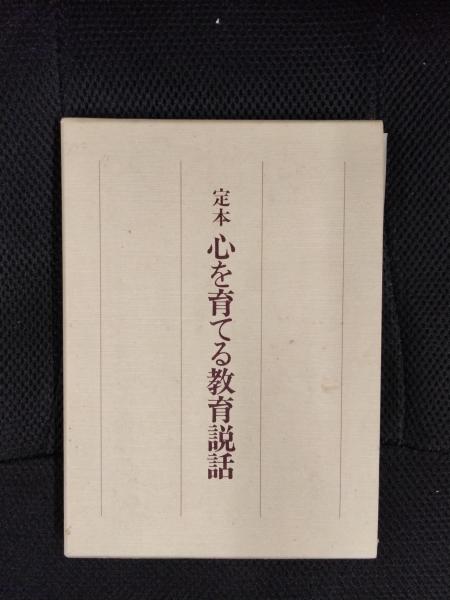 定本 心を育てる教育説話